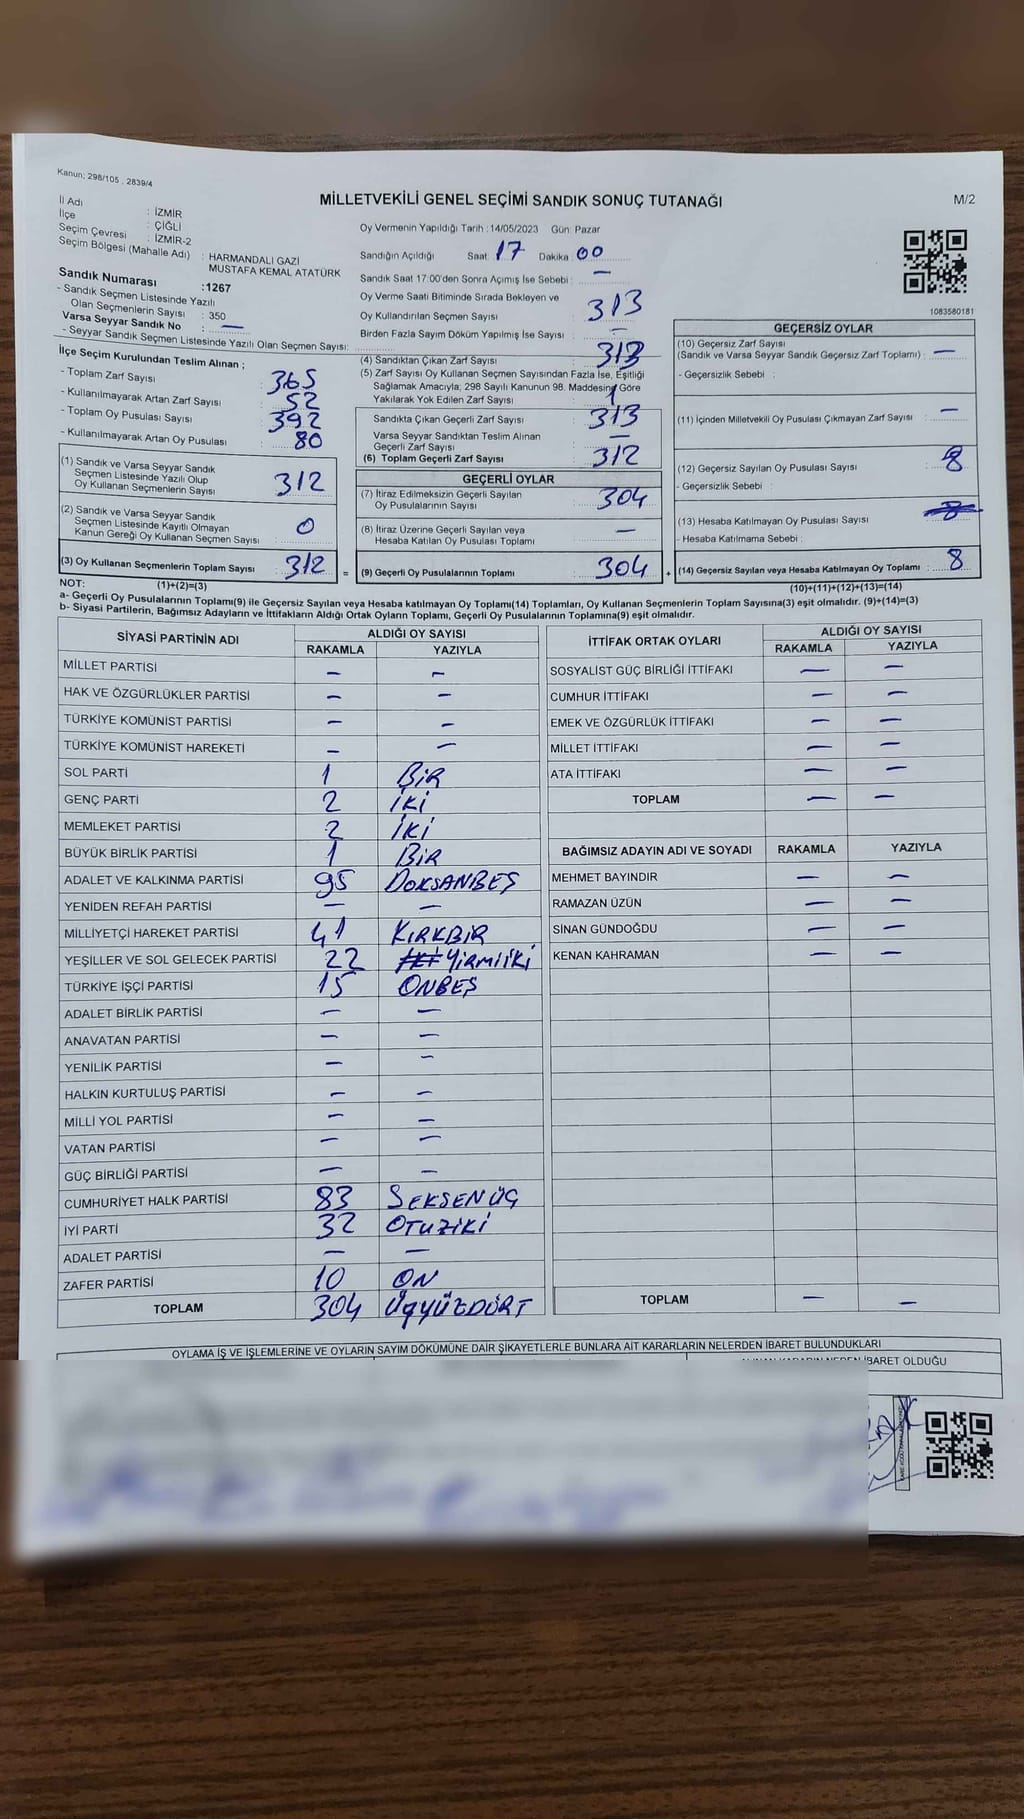 Kanun; 298/105 , 2839/4
MİLLETVEKİLİ GENEL SEÇİMİ SANDIK SONUÇ TUTANAĞI
M/2
İl Adı : İZMİR
İlçe : ÇİĞLİ
Seçim Çevresi : İZMİR-2
Seçim Bölgesi (Mahalle Adı) : HARMANDALI GAZİ
MUSTAFA KEMAL ATATÜRK
Sandık Numarası :1267
- Sandık Seçmen Listesinde Yazılı
Olan Seçmenlerin Sayısı : 350
Varsa Seyyar Sandık No : —
- Seyyar Sandık Seçmen Listesinde Yazılı Olan Seçmen Sayısı:
Oy Vermenin Yapıldığı Tarih : 14/05/2023 Gün: Pazar
Sandığın Açıldığı Saat: 17 Dakika : 00
Sandık Saat 17:00'den Sonra Açımış İse Sebebi : —
Oy Verme Saati Bitiminde Sırada Bekleyen ve
Oy Kullandırılan Seçmen Sayısı : 313
Birden Fazla Sayım Döküm Yapılmış İse Sayısı : —
1083580181
İlçe Seçim Kurulundan Teslim Alınan ;
- Toplam Zarf Sayısı : 365
- Kullanılmayarak Artan Zarf Sayısı : 52
- Toplam Oy Pusulası Sayısı : 392
- Kullanılmayarak Artan Oy Pusulası : 80
(1) Sandık ve Varsa Seyyar Sandık
Seçmen Listesinde Yazılı Olup
Oy Kullanan Seçmenlerin Sayısı : 312
(2) Sandık ve Varsa Seyyar Sandık
Seçmen Listesinde Kayıtlı Olmayan
Kanun Gereği Oy Kullanan Seçmen Sayısı : 0
(3) Oy Kullanan Seçmenlerin Toplam Sayısı : 312 =
(4) Sandıktan Çıkan Zarf Sayısı : 313
(5) Zarf Sayısı Oy Kullanan Seçmen Sayısından Fazla İse, Eşitliği
Sağlamak Amacıyla; 298 Sayılı Kanunun 98. Maddesine Göre
Yakılarak Yok Edilen Zarf Sayısı : 1
Sandıkta Çıkan Geçerli Zarf Sayısı : 313
Varsa Seyyar Sandıktan Teslim Alınan
Geçerli Zarf Sayısı : —
(6) Toplam Geçerli Zarf Sayısı : 312
GEÇERLİ OYLAR
(7) İtiraz Edilmeksizin Geçerli Sayılan
Oy Pusulalarının Sayısı : 304
(8) İtiraz Üzerine Geçerli Sayılan veya
Hesaba Katılan Oy Pusulası Toplamı : —
(9) Geçerli Oy Pusulalarının Toplamı : 304 +
GEÇERSİZ OYLAR
(10) Geçersiz Zarf Sayısı
(Sandık ve Varsa Seyyar Sandık Geçersiz Zarf Toplamı) : —
- Geçersizlik Sebebi :
(11) İçinden Milletvekil Oy Pusulası Çıkmayan Zarf Sayısı : —
(12) Geçersiz Sayılan Oy Pusulası Sayısı : 8
- Geçersizlik Sebebi :
(13) Hesaba Katılmayan Oy Pusulası Sayısı : 8
- Hesaba Katılmama Sebebi :
(14) Geçersiz Sayılan veya Hesaba Katılmayan Oy Toplamı : 8
NOT: (1)+(2)=(3) (10)+(11)+(12)+(13)=(14)
a- Geçerli Oy Pusulalarının Toplamı(9) ile Geçersiz Sayılan veya Hesaba katılmayan Oy Toplamı(14) Toplamları, Oy Kullanan Seçmenlerin Toplam Sayısına(3) eşit olmalıdır. (9)+(14)=(3)
b- Siyasi Partilerin, Bağımsız Adayların ve İttifakların Aldığı Ortak Oyların Toplamı, Geçerli Oy Pusulalarının Toplamına(9) eşit olmalıdır.
SİYASİ PARTİNİN ADI ALDIĞI OY SAYISI
RAKAMLA YAZIYLA
MİLLET PARTİSİ — —
HAK VE ÖZGÜRLÜKLER PARTİSİ — —
TÜRKİYE KOMÜNİST PARTİSİ — —
TÜRKİYE KOMÜNİST HAREKETİ — —
SOL PARTİ 1 BİR
GENÇ PARTİ 2 İKİ
MEMLEKET PARTİSİ 2 İKİ
BÜYÜK BİRLİK PARTİSİ 1 BİR
ADALET VE KALKINMA PARTİSİ 95 DOKSANBEŞ
YENİDEN REFAH PARTİSİ — —
MİLLİYETÇİ HAREKET PARTİSİ 41 KIRKBİR
YEŞİLLER VE SOL GELECEK PARTİSİ 22 YİRMİİKİ
TÜRKİYE İŞÇİ PARTİSİ 15 ONBEŞ
ADALET BİRLİK PARTİSİ — —
ANAVATAN PARTİSİ — —
YENİLİK PARTİSİ — —
HALKIN KURTULUŞ PARTİSİ — —
MİLLİ YOL PARTİSİ — —
VATAN PARTİSİ — —
GÜÇ BİRLİĞİ PARTİSİ — —
CUMHURİYET HALK PARTİSİ 83 SEKSENÜÇ
İYİ PARTİ 32 OTUZİKİ
ADALET PARTİSİ — —
ZAFER PARTİSİ 10 ON
TOPLAM 304 ÜÇYÜZDÖRT
İTTİFAK ORTAK OYLARI ALDIĞI OY SAYISI
RAKAMLA YAZIYLA
SOSYALİST GÜÇ BİRLİĞİ İTTİFAKI — —
CUMHUR İTTİFAKI — —
EMEK VE ÖZGÜRLÜK İTTİFAKI — —
MİLLET İTTİFAKI — —
ATA İTTİFAKI — —
TOPLAM — —
BAĞIMSIZ ADAYIN ADI VE SOYADI RAKAMLA YAZIYLA
MEHMET BAYINDIR — —
RAMAZAN ÜZÜN — —
SİNAN GÜNDOĞDU — —
KENAN KAHRAMAN — —
TOPLAM — —
OYLAMA İŞ VE İŞLEMLERİNE VE OYLARIN SAYIM DÖKÜMÜNE DAİR ŞİKAYETLERLE BUNLARA AİT KARARLARIN NELERDEN İBARET BULUNDUKLARI
İBARET OLDUĞU